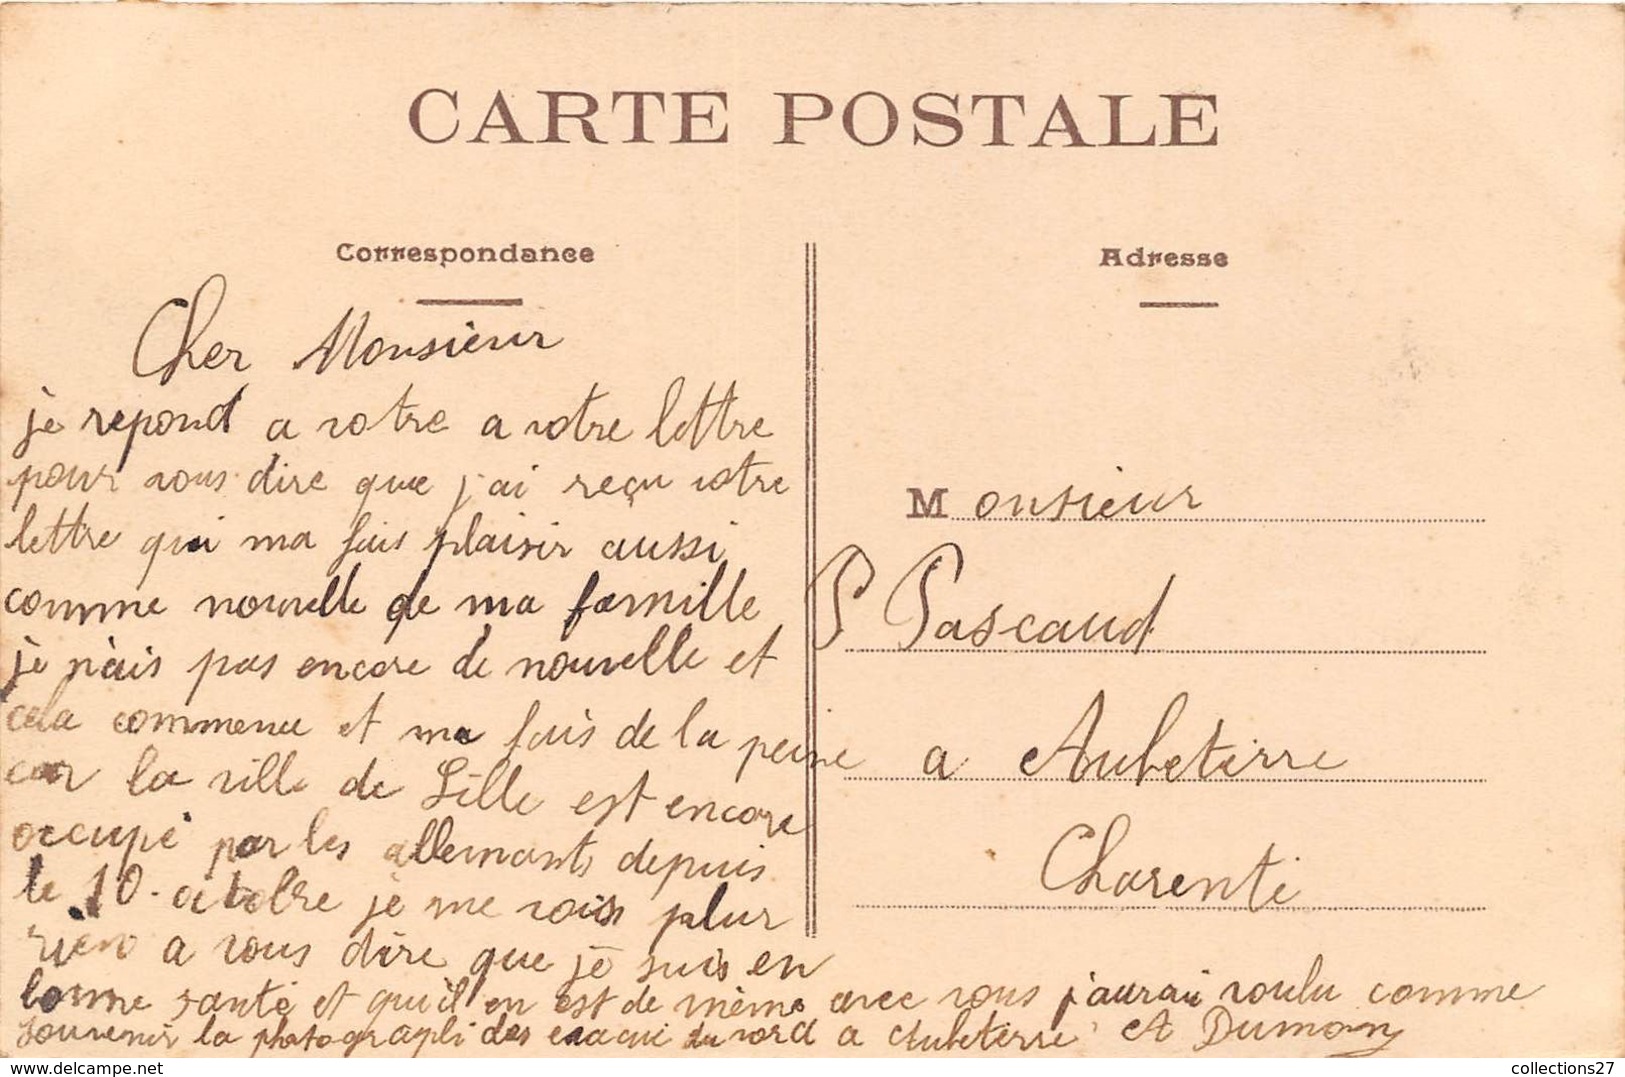 CARTE POSTALE
Correspondance
Cher Monsieur
je repond a votre a votre lettre
pour vous dire que j'ai reçu votre
lettre qui ma fais plaisir aussi
comme nouvelle de ma famille
je n'ais pas encore de nouvelle et
cela commence et ma fais de la peine
car la ville de Lille est encore
occupé par les allemants depuis
le 10 octobre je me vois plus
rien a vous dire que je suis en
bonne santé et qu'il en est de même avec vous j'aurai voulu comme
souvenir la photographi des du nord a Aubeterre A Dumon
Adresse
Monsieur
P Pascaud
a Aubeterre
Charente
collections27